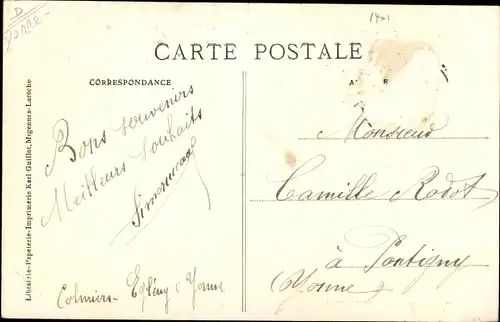 D
Yonne
1421
CARTE POSTALE
CORRESPONDANCE
A R
Bons souvenirs
Meilleurs souhaits
Monsieur
Camille Rodot
à Pontigny
(Yonne)
Égleny (Yonne
Librairie-Papeterie-Imprimerie Karl Guillot, Migennes-Laroche